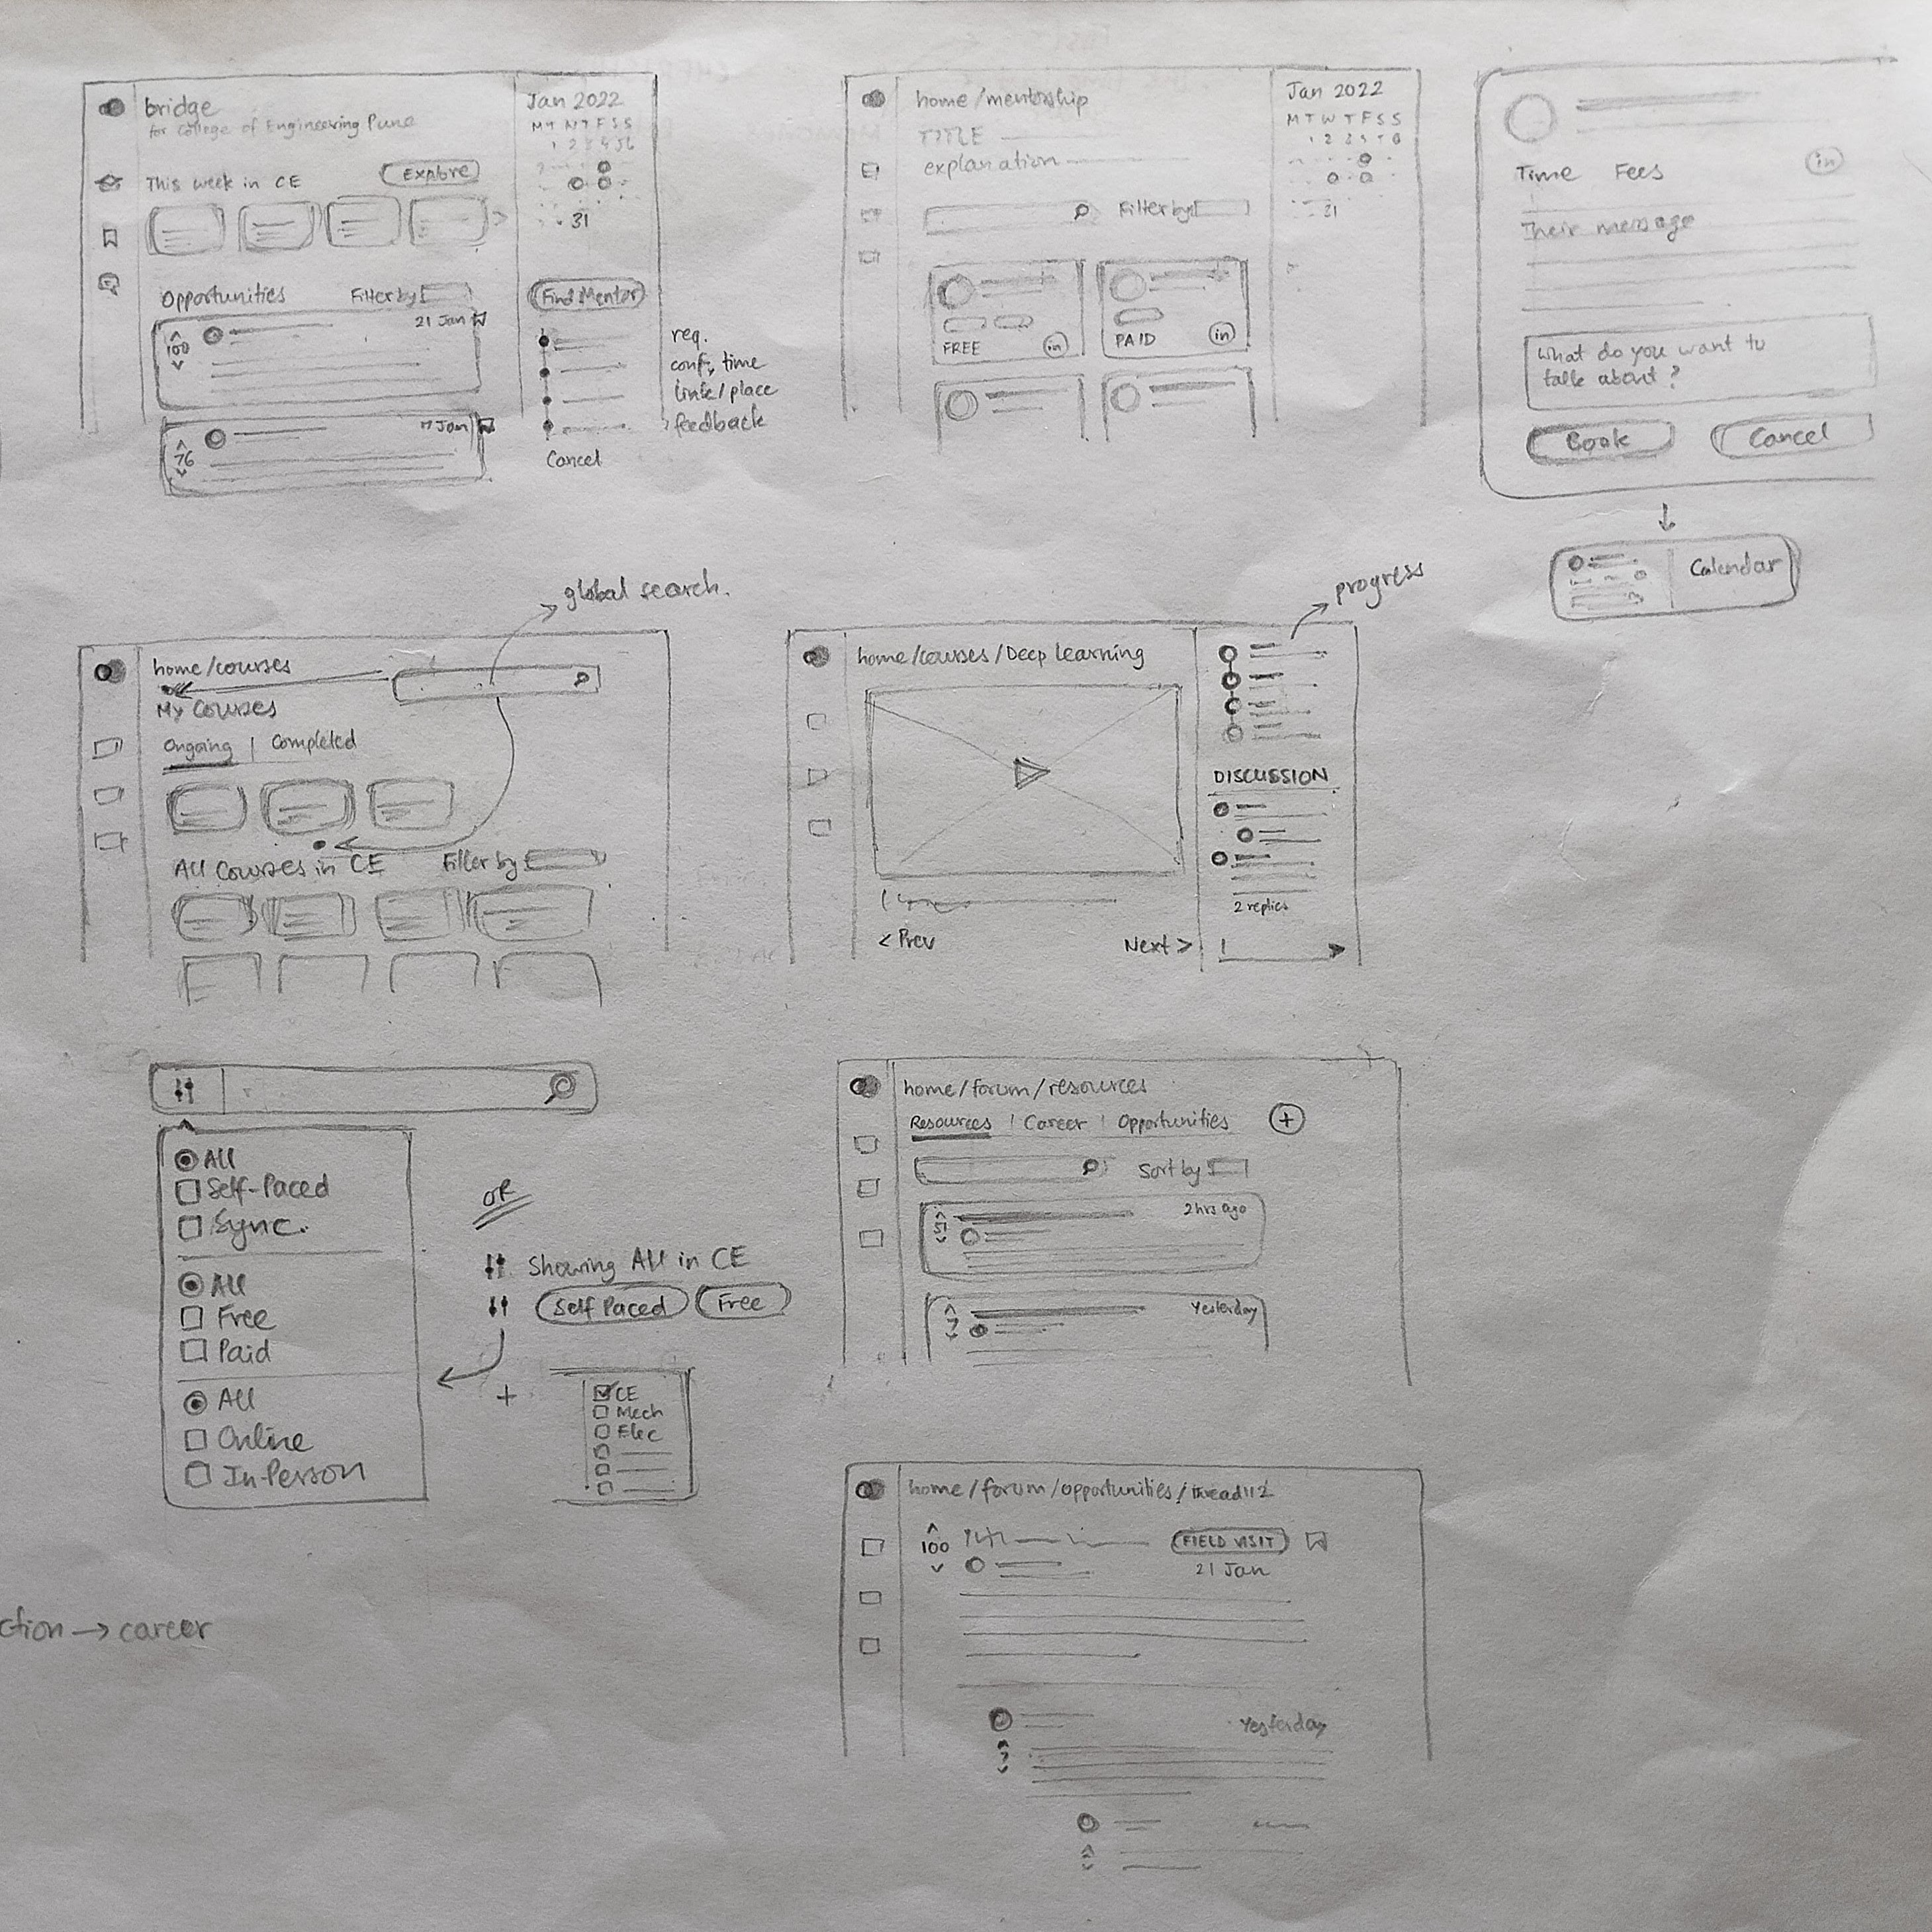 bridge
for College of Engineering Pune
This week in CE
Explore
Opportunities
Filter by
21 Jan
100
76
Jan 2022
M T W T F S S
1 2 3 4 5 6
31
Find Mentor
Cancel
req.
conf, time
link/place
feedback
home/mentorship
TITLE
explanation
Filter by
FREE
in
PAID
in
Jan 2022
M T W T F S S
31
Time
Fees
in
Their message
What do you want to
talk about?
Book
Cancel
Calendar
global search.
home/courses
My Courses
Ongoing | Completed
All Courses in CE
Filter by
progress
home/courses/Deep Learning
< Prev
Next >
DISCUSSION
2 replies
All
Self-Paced
Sync.
All
Free
Paid
All
Online
In-Person
OR
Showing All in CE
Self Paced
Free
+
CE
Mech
Elec
home/forum/resources
Resources | Career | Opportunities
+
Sort by
51
2hrs ago
Yesterday
home/forum/opportunities/thread112
100
FIELD VISIT
21 Jan
Yesterday
ction → career